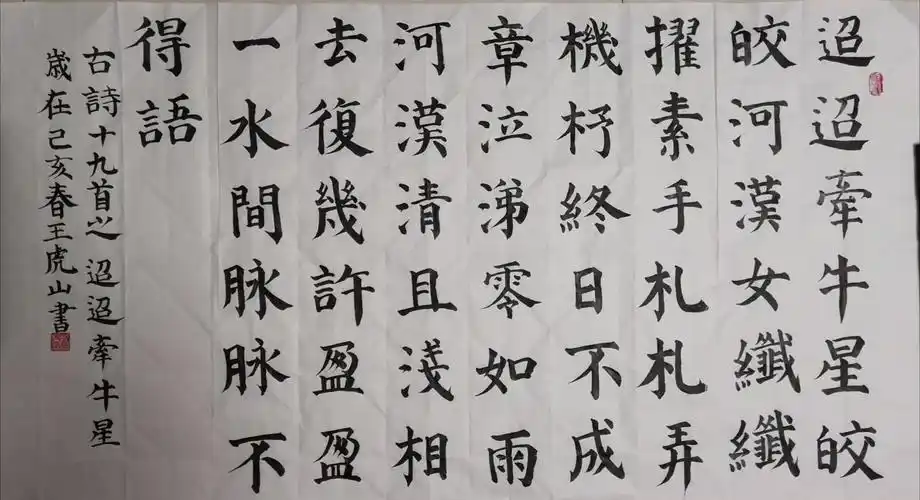 迢迢牽牛星皎
皎河漢女纖纖
擢素手札札弄
機杼終日不成
章泣涕零如雨
河漢清且淺相
去復幾許盈盈
一水間脉脉不
得語
古詩十九首之迢迢牽牛星
歲在己亥春王虎山書